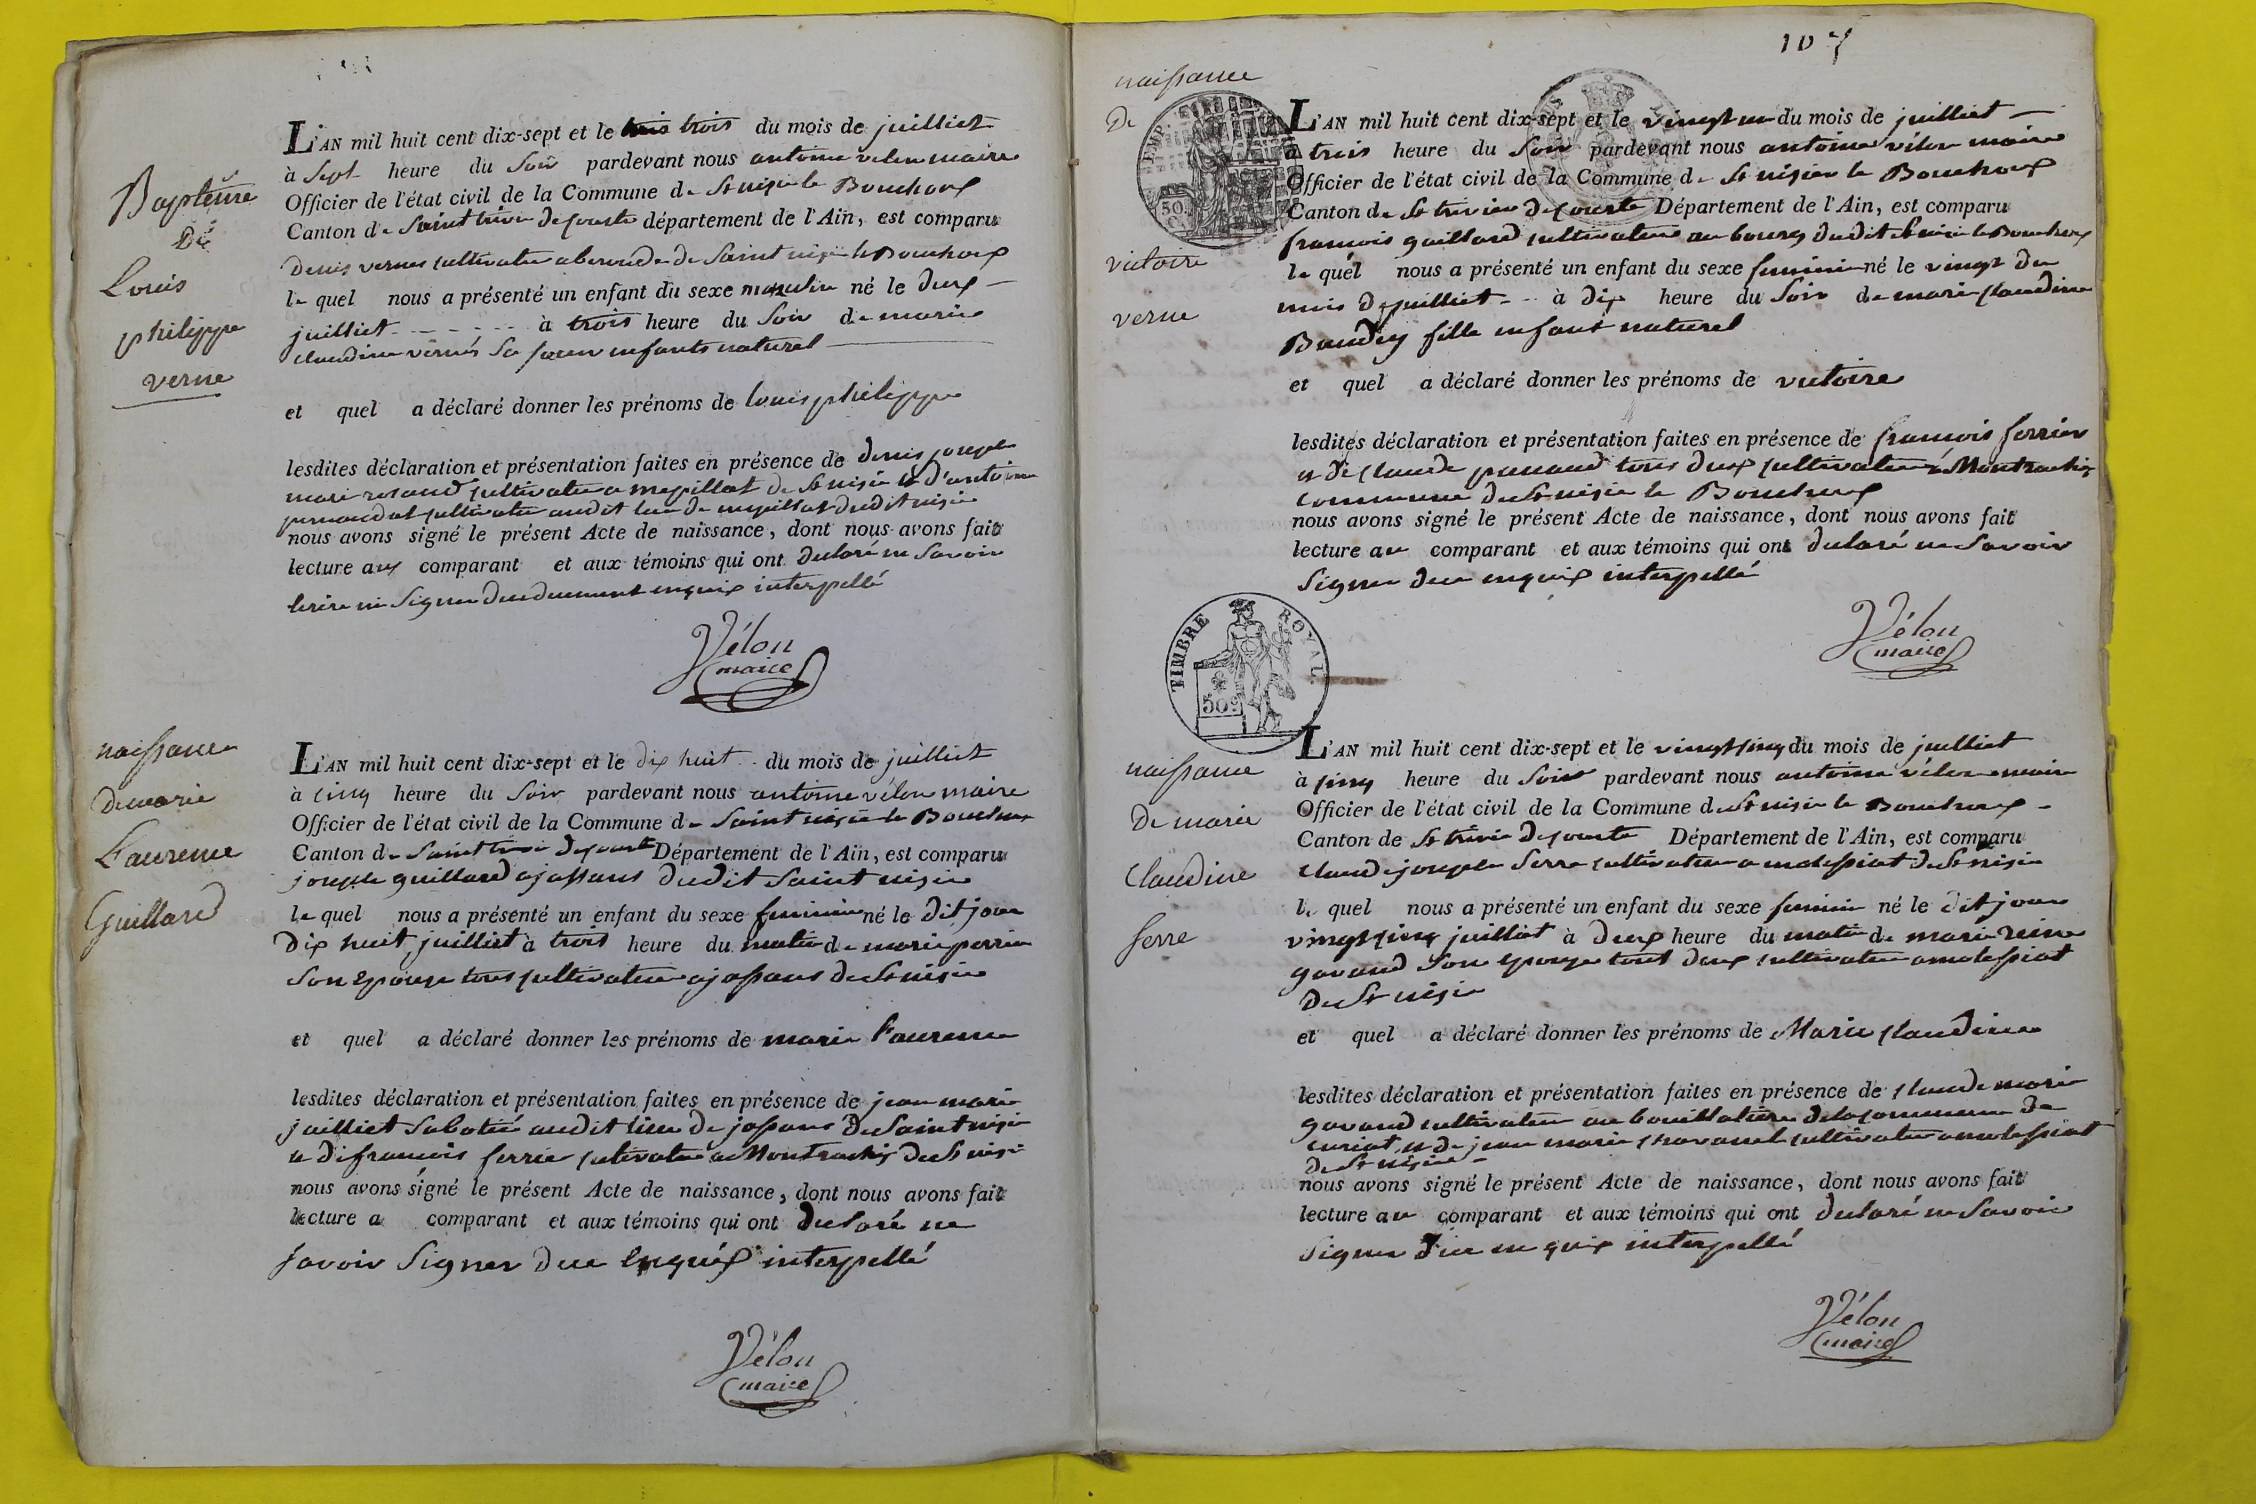 Baptême
De
Louis
philippe
verne
L'AN mil huit cent dix-sept et le trois du mois de juilliet
à Sept heure du Soir pardevant nous antoine vélon maire
Officier de l'état civil de la Commune de St nisier le Bouchoux
Canton de Saint trivier de courte département de l'Ain, est comparu
Denis vernes cultivateur de Saint nisier le Bouchoux
le quel nous a présenté un enfant du sexe masculin né le deux
juilliet à trois heure du Soir de marie
claudine vernes Sa soeur enfants naturel
et quel a déclaré donner les prénoms de louis philippe
lesdites déclaration et présentation faites en présence de denis joseph
marie cultivateur a mepillat de St nisier et d'antoine
cultivateur audit lieu de mepillat dudit nisier
nous avons signé le présent Acte de naissance, dont nous avons fait
lecture aux comparant et aux témoins qui ont declaré ne Savoir
Signer enquix interpellé
Vélon
maire
naissance
de marie
Laurence
Guillard
L'AN mil huit cent dix-sept et le dix huit du mois de juilliet
à cinq heure du Soir pardevant nous antoine vélon maire
Officier de l'état civil de la Commune de Saint nisier le Bouchoux
Canton de Saint trivier de courte Département de l'Ain, est comparu
joseph guillard a jassans dudit Saint nisier
le quel nous a présenté un enfant du sexe feminin né le dit jour
Dix huit juilliet à trois heure du matin de marie perrin
Son Epouse tous cultivateur a jassans de St nisier
et quel a déclaré donner les prénoms de marie Laurence
lesdites déclaration et présentation faites en présence de jean marie
juilliet Sabotié audit lieu de jassans de Saint nisier
et de francois ferrier cultivateur a Montrachix de St nisier
nous avons signé le présent Acte de naissance, dont nous avons fait
lecture a comparant et aux témoins qui ont declaré ne
Savoir Signer due Enquéx interpellé
Vélon
maire
107
naissance
De
victoire
verne
L'AN mil huit cent dix-sept et le vingt un du mois de juilliet
à trois heure du Soir pardevant nous antoine vélon maire
Officier de l'état civil de la Commune de St nisier le Bouchoux
Canton de St trivier de courte Département de l'Ain, est comparu
francois guillard cultivateur au bourg dudit St nisier le Bouchoux
le quel nous a présenté un enfant du sexe feminin né le vingt du
mois de juilliet à dix heure du Soir de marie claudine
Baudey fille enfant naturel
et quel a déclaré donner les prénoms de victoire
lesdites déclaration et présentation faites en présence de francois ferrier
et de claude tous deux cultivateur a Montrachix
commune de St nisier le Bouchoux
nous avons signé le présent Acte de naissance, dont nous avons fait
lecture au comparant et aux témoins qui ont declaré ne Savoir
Signer due enquix interpellé
TIMBRE ROYAL
50c
Vélon
maire
naissance
De marie
Claudine
ferre
L'AN mil huit cent dix-sept et le vingt cinq du mois de juilliet
à cinq heure du Soir pardevant nous antoine vélon maire
Officier de l'état civil de la Commune de St nisier le Bouchoux
Canton de St trivier de courte Département de l'Ain, est comparu
claude joseph Serre cultivateur a molessiat de St nisier
le quel nous a présenté un enfant du sexe feminin né le dit jour
vingt cinq juilliet à deux heure du matin de marie reine
gavand Son epouse tout deux cultivateur a molessiat
de St nisier
et quel a déclaré donner les prénoms de Marie claudine
lesdites déclaration et présentation faites en présence de claude marie
gavand cultivateur de la commune de
curciat et de jean marie chavanel cultivateur a molessiat
de St nisier
nous avons signé le présent Acte de naissance, dont nous avons fait
lecture au comparant et aux témoins qui ont declaré ne Savoir
Signer due enquix interpellé
Vélon
maire